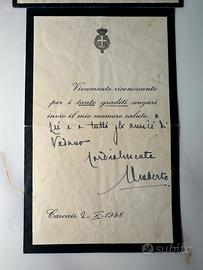 Vivamente riconoscente
per i tanto graditi auguri
invio il mio memore saluto, a
Lui e a tutti gli amici di
Cordialmente
Umberto
Cascais, 2 - X - 1948
subito